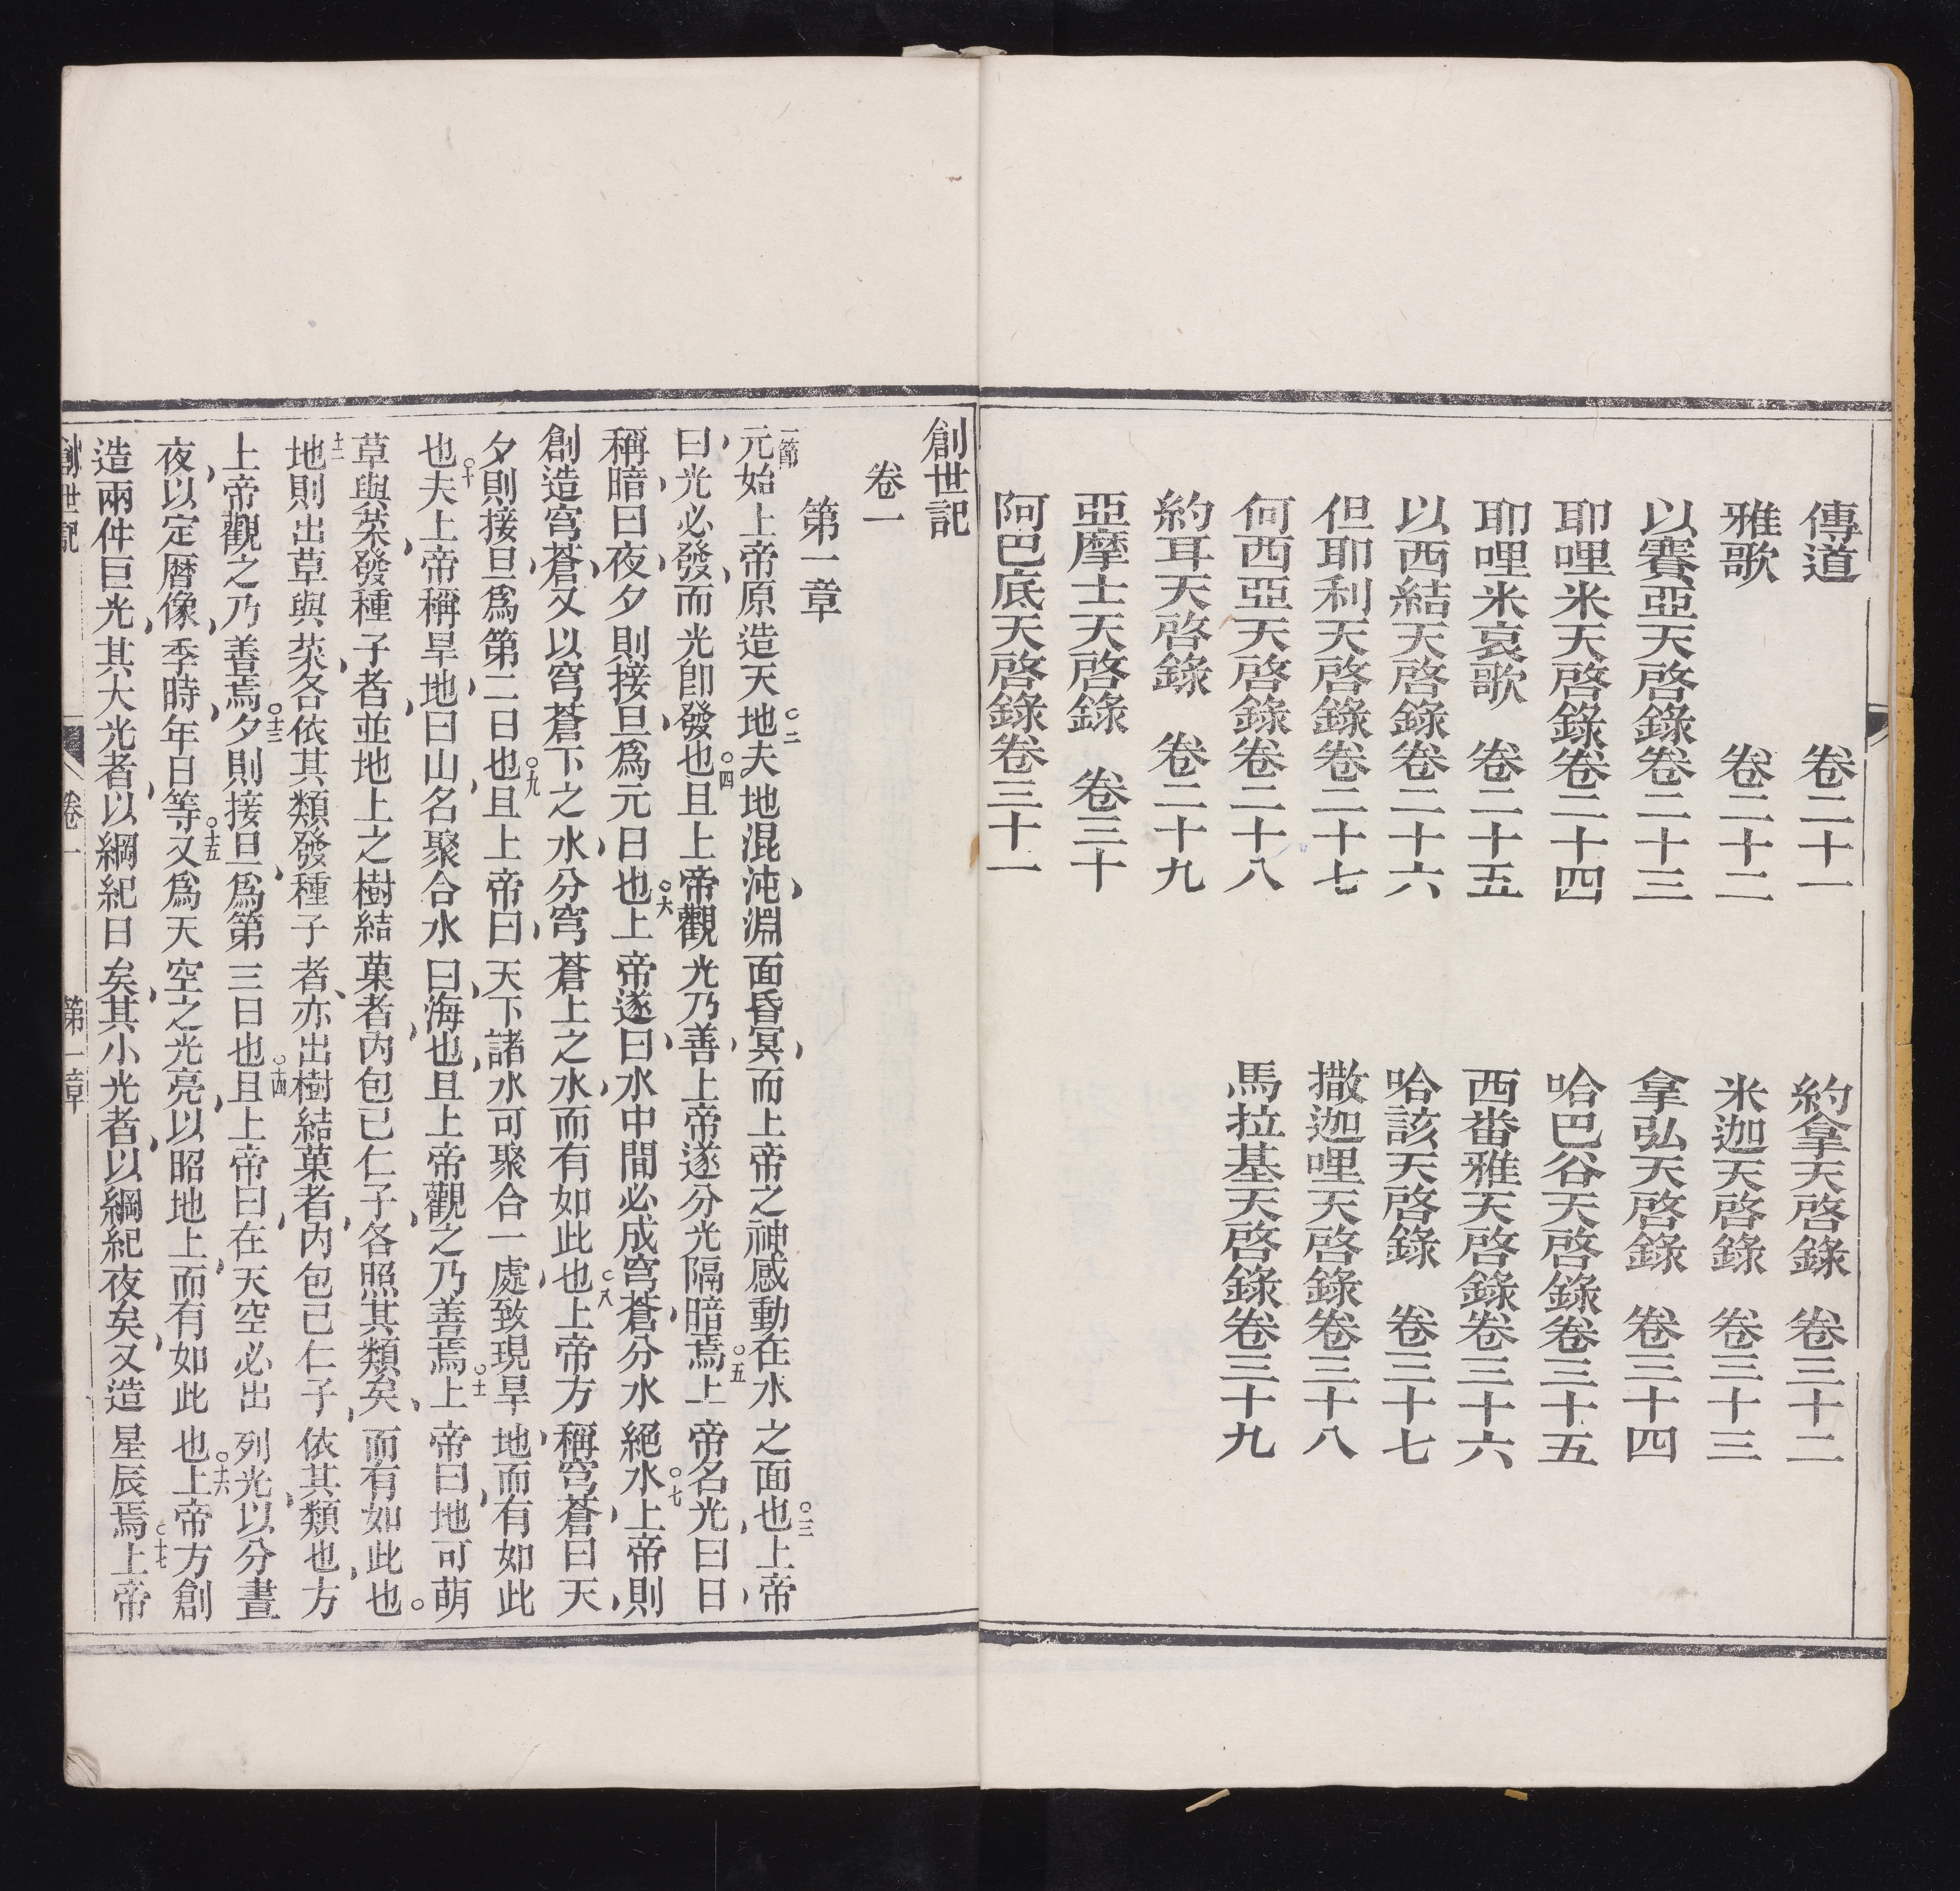 傳道 卷二十一
雅歌 卷二十二
以賽亞天啓錄卷二十三
耶哩米天啓錄卷二十四
耶哩米哀歌 卷二十五
以西結天啓錄卷二十六
但耶利天啓錄卷二十七
何西亞天啓錄卷二十八
約耳天啓錄 卷二十九
亞摩士天啓錄 卷三十
阿巴底天啓錄卷三十一
約拿天啓錄 卷三十二
米迦天啓錄 卷三十三
拿弘天啓錄 卷三十四
哈巴谷天啓錄卷三十五
西番雅天啓錄卷三十六
哈該天啓錄 卷三十七
撒迦哩天啓錄卷三十八
馬拉基天啓錄卷三十九
創世記
卷一
第一章
一節元始上帝原造天地○二夫地混沌,淵面昏冥,而上帝之神感動在水之面也○三上帝
曰,光必發,而光卽發也○四且上帝觀光乃善,上帝遂分光隔暗焉○五上帝名光曰日,
稱暗曰夜,夕則接旦,爲元日也○六上帝遂曰,水中間必成穹蒼,分水絕水○七上帝則
創造穹蒼,又以穹蒼下之水,分穹蒼上之水,而有如此也○八上帝方稱穹蒼曰天,
夕則接旦,爲第二日也○九且上帝曰,天下諸水可聚合一處,致現旱地,而有如此
也○十夫上帝稱旱地曰山,名聚合水曰海也,且上帝觀之乃善焉○十一上帝曰,地可萌
草與菜,發種子者,並地上之樹結菓者,內包已仁子,各照其類矣,而有如此也○
十二地則出草與菜,各依其類發種子者,亦出樹結菓者,內包己仁子,依其類也,方
上帝觀之乃善焉○十三夕則接旦,爲第三日也○十四且上帝曰,在天空必出列光,以分晝
夜,以定曆像,季時,年日等○十五又爲天空之光亮,以昭地上,而有如此也○十六上帝方創
造兩件巨光,其大光者,以綱紀日矣,其小光者,以綱紀夜矣,又造星辰焉○十七上帝
創世記 卷一 第一章